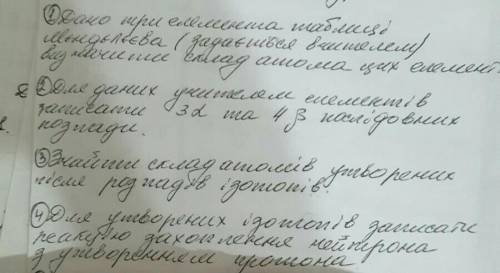 ① Дано три елемента таблиці
Менделєєва (задається вчителем)
визначити склад атома цих елемент
② Для даних учителем елементів
записати 3α та 4β послідовних
розпади.
③ Знайти склад атомів утворених
після розпадів ізотопів.
④ Для утворених ізотопів записати
реакцію захоплення нейтрона
з утворенням протона